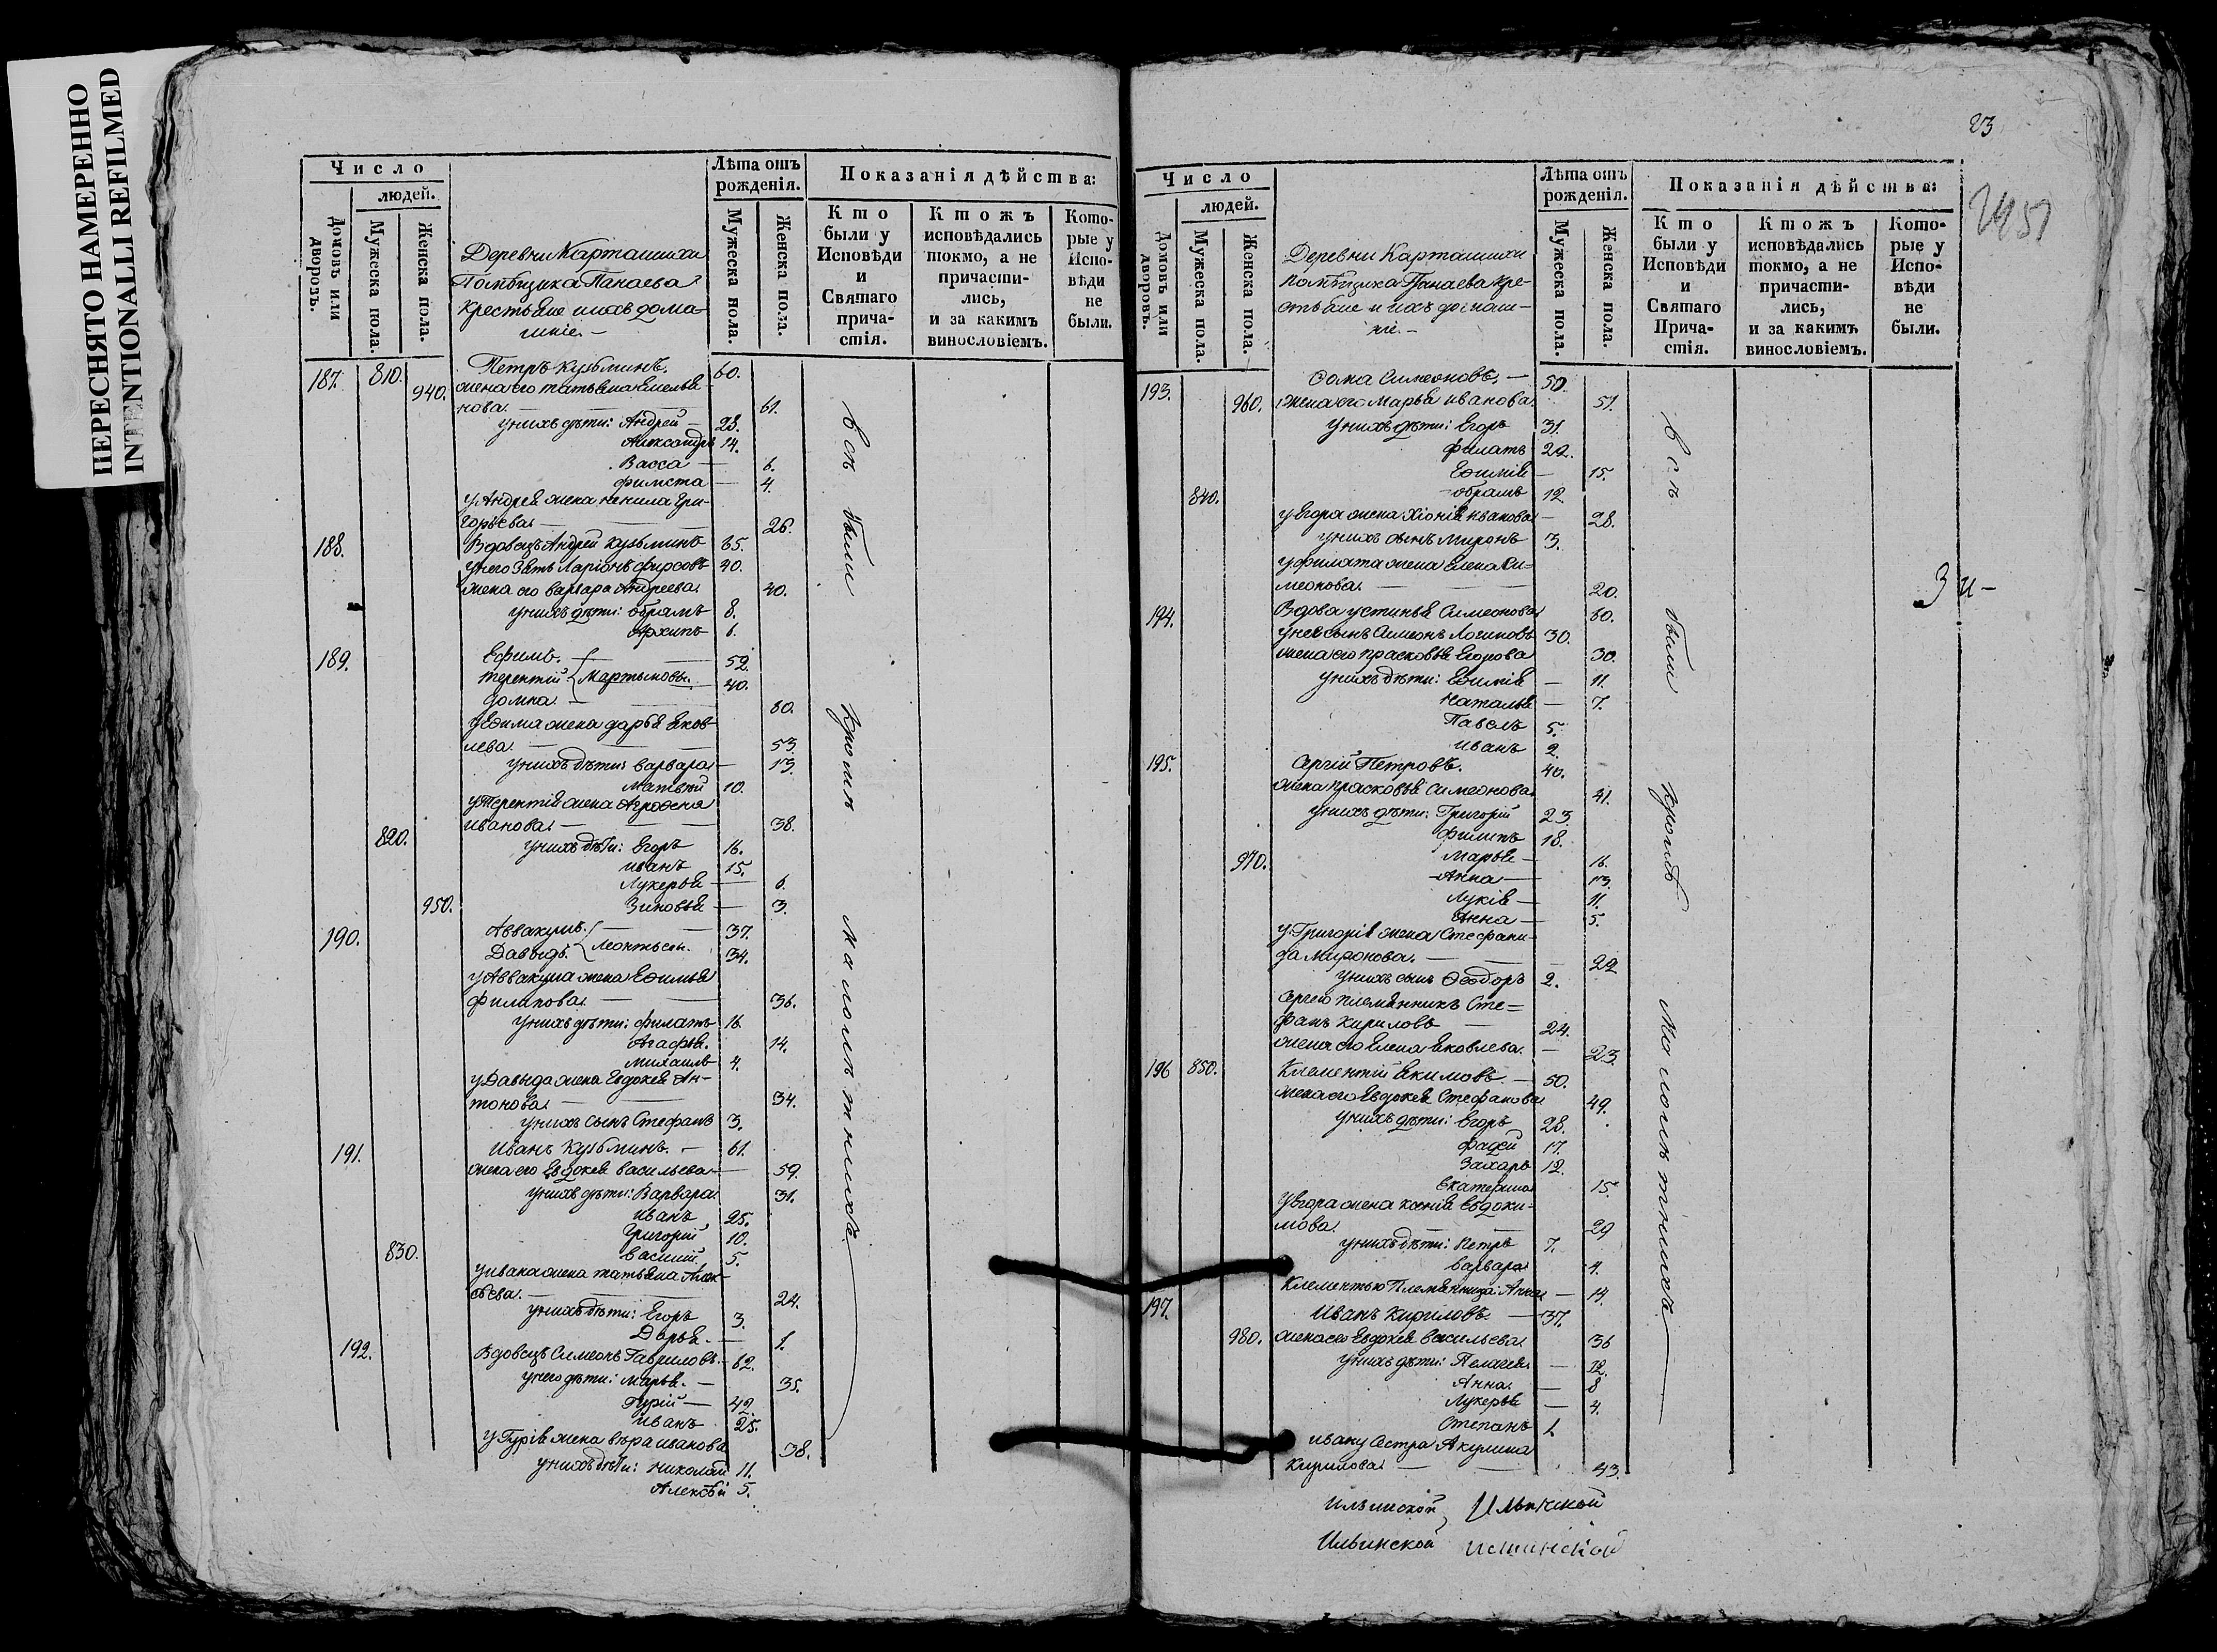 ПЕРЕСНЯТО НАМЕРЕННО
INTENTIONALLI REFILMED
Число
людей.
Домовъ или дворовъ.
Мужеска пола.
Женска пола.
Деревни Карташихи
Помѣщика Панаева
крестьяне и ихъ дома-
шніе.-
Лѣта отъ рожденія.
Мужеска пола.
Женска пола.
Показанія дѣйства:
Кто были у Исповѣди и Святаго причастія.
Ктожъ исповѣдались токмо, а не причастились, и за какимъ винословіемъ.
Которые у Исповѣди не были.
187. 810. Петръ Кузьминъ. 60.
940. жена его татьяна Емелья-
нова. 61.
у нихъ дѣти: Андрей 28.
Александръ 14.
Васса 6.
Филиста 4.
у Андрея жена Ненила Гри-
горьева 26.
188. Вдовецъ Андрей Кузьминъ 65.
у него зять Ларіонъ Фирсовъ 40.
жена его варвара Андреева 40.
у нихъ дѣти: обрамъ 8.
Архипъ 6.
189. Ефимъ. 52.
терентій Мартыновы. 40.
домна. 80.
у Ефима жена дарья Яков-
лева. 53.
у нихъ дѣти: варвара 13.
Матвѣй 10.
у терентія жена Аграфена
иванова 38.
820. у нихъ дѣти: Егоръ 16.
иванъ 15.
Лукерья 6.
950. Зиновья 3.
190. Аввакумъ. 37.
Давыдъ. Леонтьевы. 34.
у Аввакума жена Ефимья
филипова. 36.
у нихъ дѣти: филатъ 16.
Агафья. 14.
михаилъ 4.
у Давыда жена Евдокея Ан-
тонова 34.
у нихъ сынъ Стефанъ 3.
191. Иванъ Кузьминъ. 61.
жена его Евдокея васильева 59.
у нихъ дѣти: Варвара 31.
иванъ 25.
Григорій 10.
830. василій 5.
у ивана жена татьяна Алек-
сѣева. 24.
у нихъ дѣти: Егоръ 3.
Дарья. 1.
192. Вдовецъ Симеонъ Гавриловъ. 62.
у него дѣти: Марья. 35.
Гурій 42.
иванъ 25.
у Гурія жена вѣра иванова 38.
у нихъ дѣти: николай 11.
Алексѣй 5.
всѣ были кромѣ малолѣтнихъ
23
Число
людей.
Домовъ или дворовъ.
Мужеска пола.
Женска пола.
Деревни Карташихи
помѣщика Панаева кре-
стьяне и ихъ домаш-
ніе.-
Лѣта отъ рожденія.
Мужеска пола.
Женска пола.
Показанія дѣйства:
Кто были у Исповѣди и Святаго Причастія.
Ктожъ исповѣдались токмо, а не причастились, и за какимъ винословіемъ.
Которые у Исповѣди не были.
193. Ѳома Симеоновъ. 50.
960. жена его Марья иванова 51.
у нихъ дѣти: Егоръ 31.
филатъ 22.
Ефимія 15.
840. обрамъ 12.
у Егора жена Хіонія иванова 28.
у нихъ сынъ Миронъ 3.
у филата жена Елена Си-
меонова. 20.
194. Вдова устинья Симеонова 60.
у нея сынъ Симеонъ Логиновъ 30.
жена его прасковья Егорова 30.
у нихъ дѣти: Ефимія 11.
наталья 7.
Павелъ 5.
иванъ 2.
195. Сергій Петровъ. 40.
жена прасковья Симеонова 41.
у нихъ дѣти: Григорій 23.
филипъ 18.
970. Марья 16.
Анна 13.
Лукія 11.
Анна 5.
у Григорія жена Стефани-
да Миронова. 22
у нихъ сынъ Ѳеодоръ 2.
Сергію племянникъ Сте=
фанъ Кириловъ 24.
жена его Елена Яковлева. 23.
196 850. Клементій Якимовъ. 50.
жена его Евдокея Стефанова 49.
у нихъ дѣти: Егоръ 28.
фадей 17.
Захаръ 12.
Екатерина 15.
у Егора жена ксенія Евдоки-
мова. 29
у нихъ дѣти: Петръ 7.
варвара 4.
Клементью Племянница: Анна 14.
197. Иванъ Кириловъ. 37.
980. жена его Евдокея васильева. 36
у нихъ дѣти: Пелагея 12.
Анна. 8
Лукерья 4.
Степанъ 1.
ивану Сестра Акулина
кирилова 43.
всѣ были кромѣ малолѣтнихъ
ильинской Ильинской
Ильинской